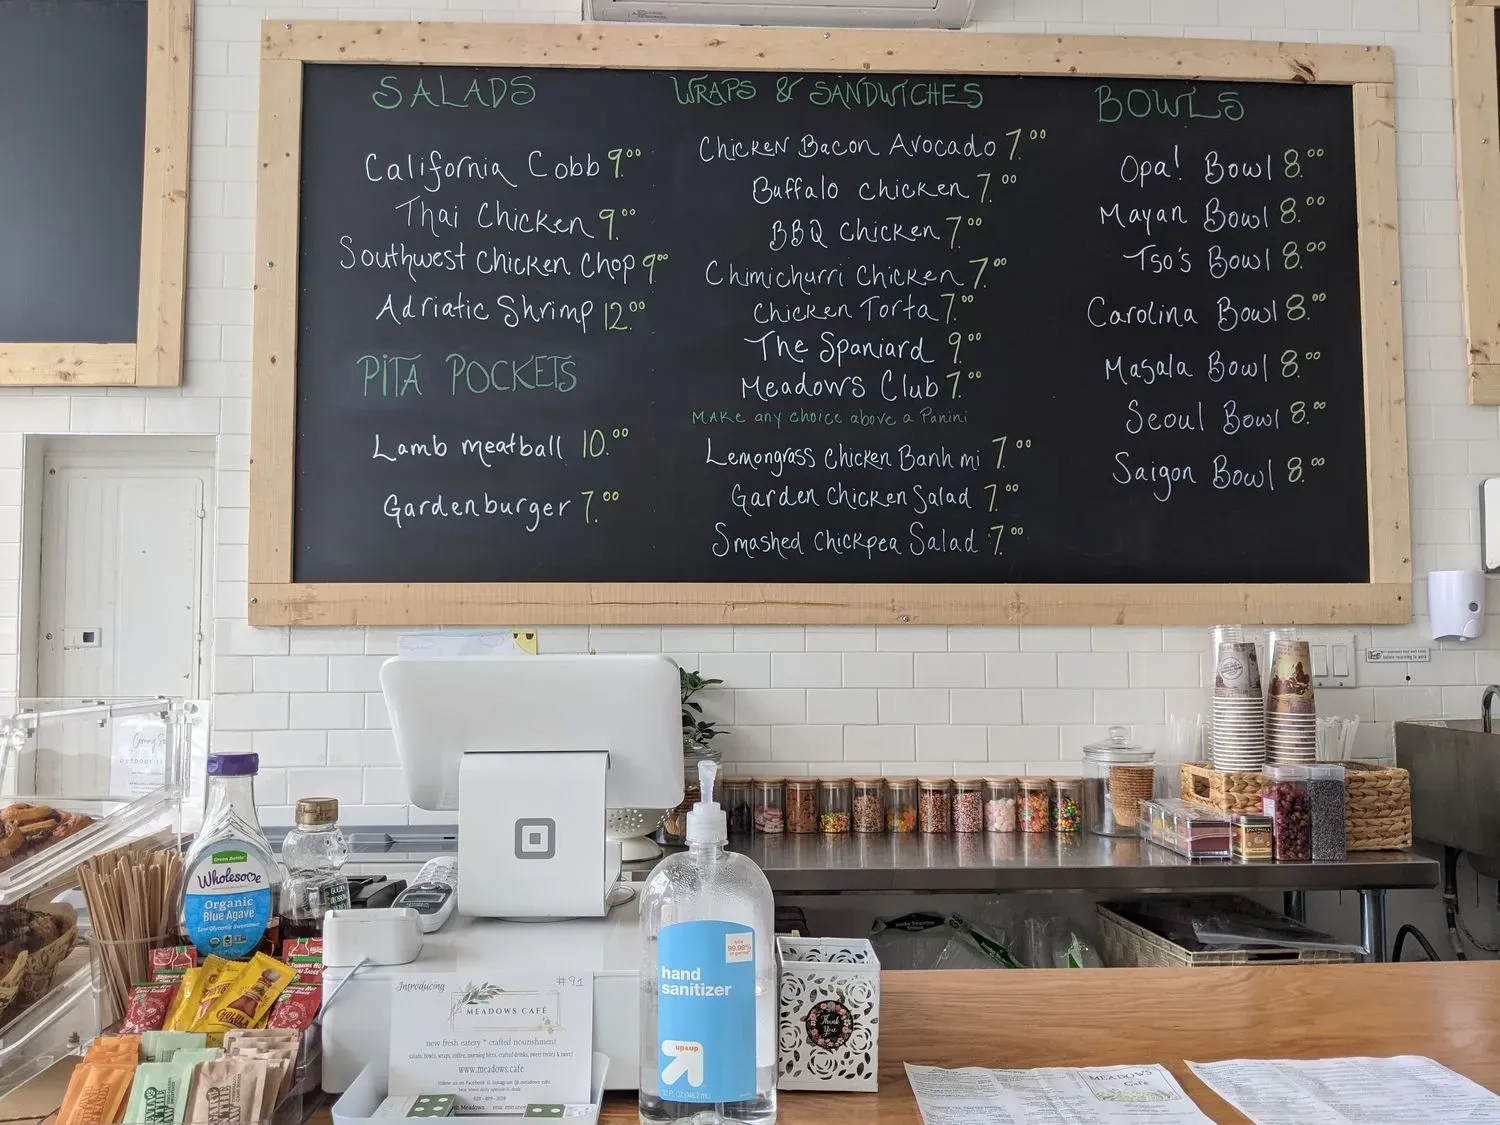 SALADS
California Cobb 9.00
Thai Chicken 9.00
Southwest Chicken Chop 9.00
Adriatic Shrimp 12.00
PITA POCKETS
Lamb meatball 10.00
Gardenburger 7.00
WRAPS & SANDWICHES
Chicken Bacon Avocado 7.00
Buffalo Chicken 7.00
BBQ Chicken 7.00
Chimichurri Chicken 7.00
Chicken Torta 7.00
The Spaniard 9.00
Meadows Club 7.00
MAKE any choice above a Panini
Lemongrass Chicken Banh mi 7.00
Garden Chicken Salad 7.00
Smashed Chickpea Salad 7.00
BOWLS
Opa! Bowl 8.00
Mayan Bowl 8.00
Tso's Bowl 8.00
Carolina Bowl 8.00
Masala Bowl 8.00
Seoul Bowl 8.00
Saigon Bowl 8.00
Green Bottle
Wholesome
Organic
Blue Agave
Low Glycemic Sweetener
Cholula
Introducing
#91
MEADOWS CAFÉ
new fresh eatery * crafted nourishment
salads, bowls, wraps, coffee, morning bites, crafted drinks, sweet treats & more!
www.meadows.cafe
follow us on Facebook & Instagram @ meadows cafe
Meadows rear entrance
kills
99.99%
of germs
hand
sanitizer
up&up
Thank
You
MEADOWS
Café